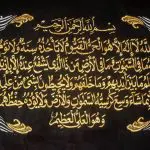 بسم الله الرحمن الرحيم
الله لا إله إلا هو الحي القيوم لا تأخذه سنة ولا نوم له
ما في السموات وما في الأرض من ذا الذي يشفع عنده إلا بإذنه
يعلم ما بين أيديهم وما خلفهم ولا يحيطون بشيء من علمه إلا
بما شاء وسع كرسيه السموات والأرض ولا يؤده حفظهما
وهو العلي العظيم